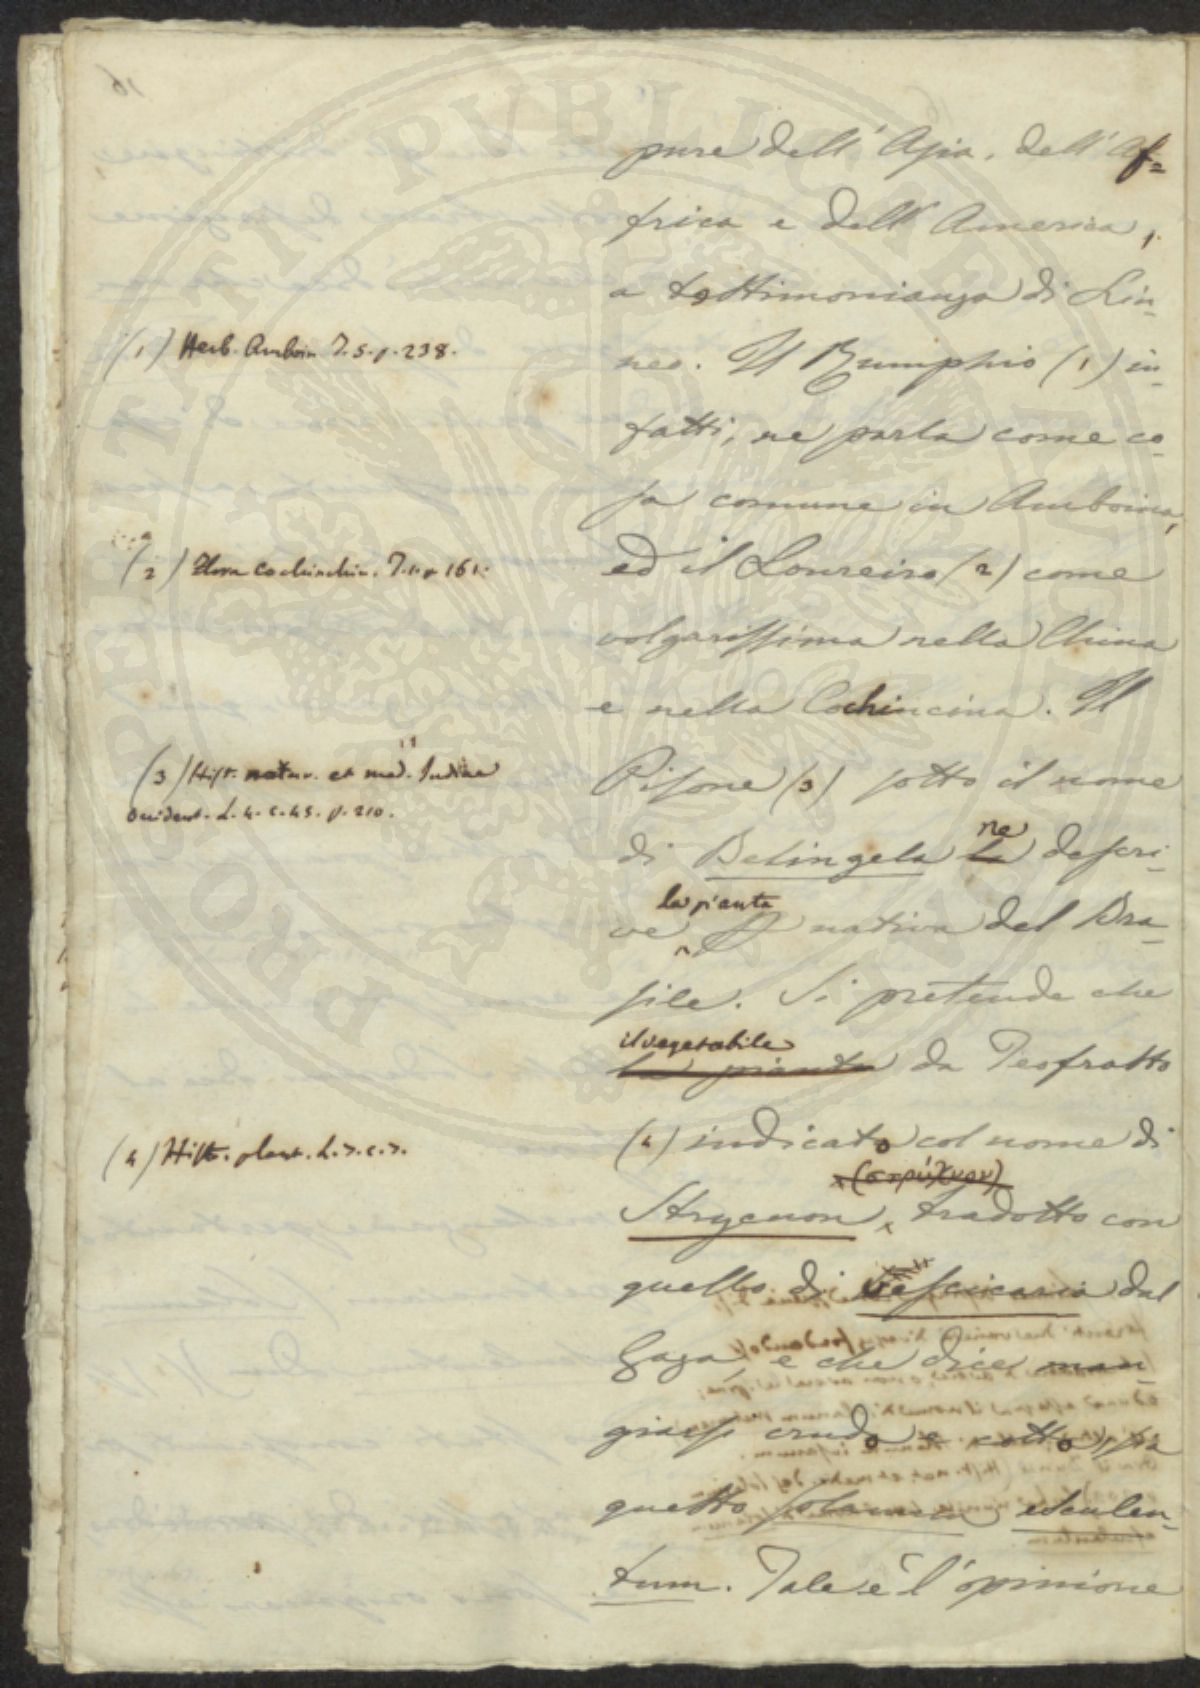 pure dell'Asia, dell'Af=
frica e dell'America,
a testimonianza di Lin-
neo. Il Rumphio (1) in-
fatti, ne parla come co-
sa comune in Amboina,
ed il Loureiro (2) come
volgarissima nella China
e nella Cochincina. Il
Pisone (3) sotto il nome
di Belingela la ne descri-
ve la pianta nativa del Bra-
sile. Si pretende che
il vegetabile
la pianta da Teofrasto
(4) indicato col nome di
(στρύχνον)
Strycnon, tradotto con
quello di Vescicaria dal
Gaza, e che dice man-
giarsi crudo e cotto, sia
questo solanum esculen-
tum. Tale è l'opinione
(1) Herb. Amboin. T. 5. p. 238.
(2) Flora Cochinchin. T. 1. p. 161.
(3) Hist. natur. et med. Indiae
Occident. L. 4. c. 45. p. 210.
(4) Hist. plant. L. 7. c. 7.
PROPERITIT PVBLICAE